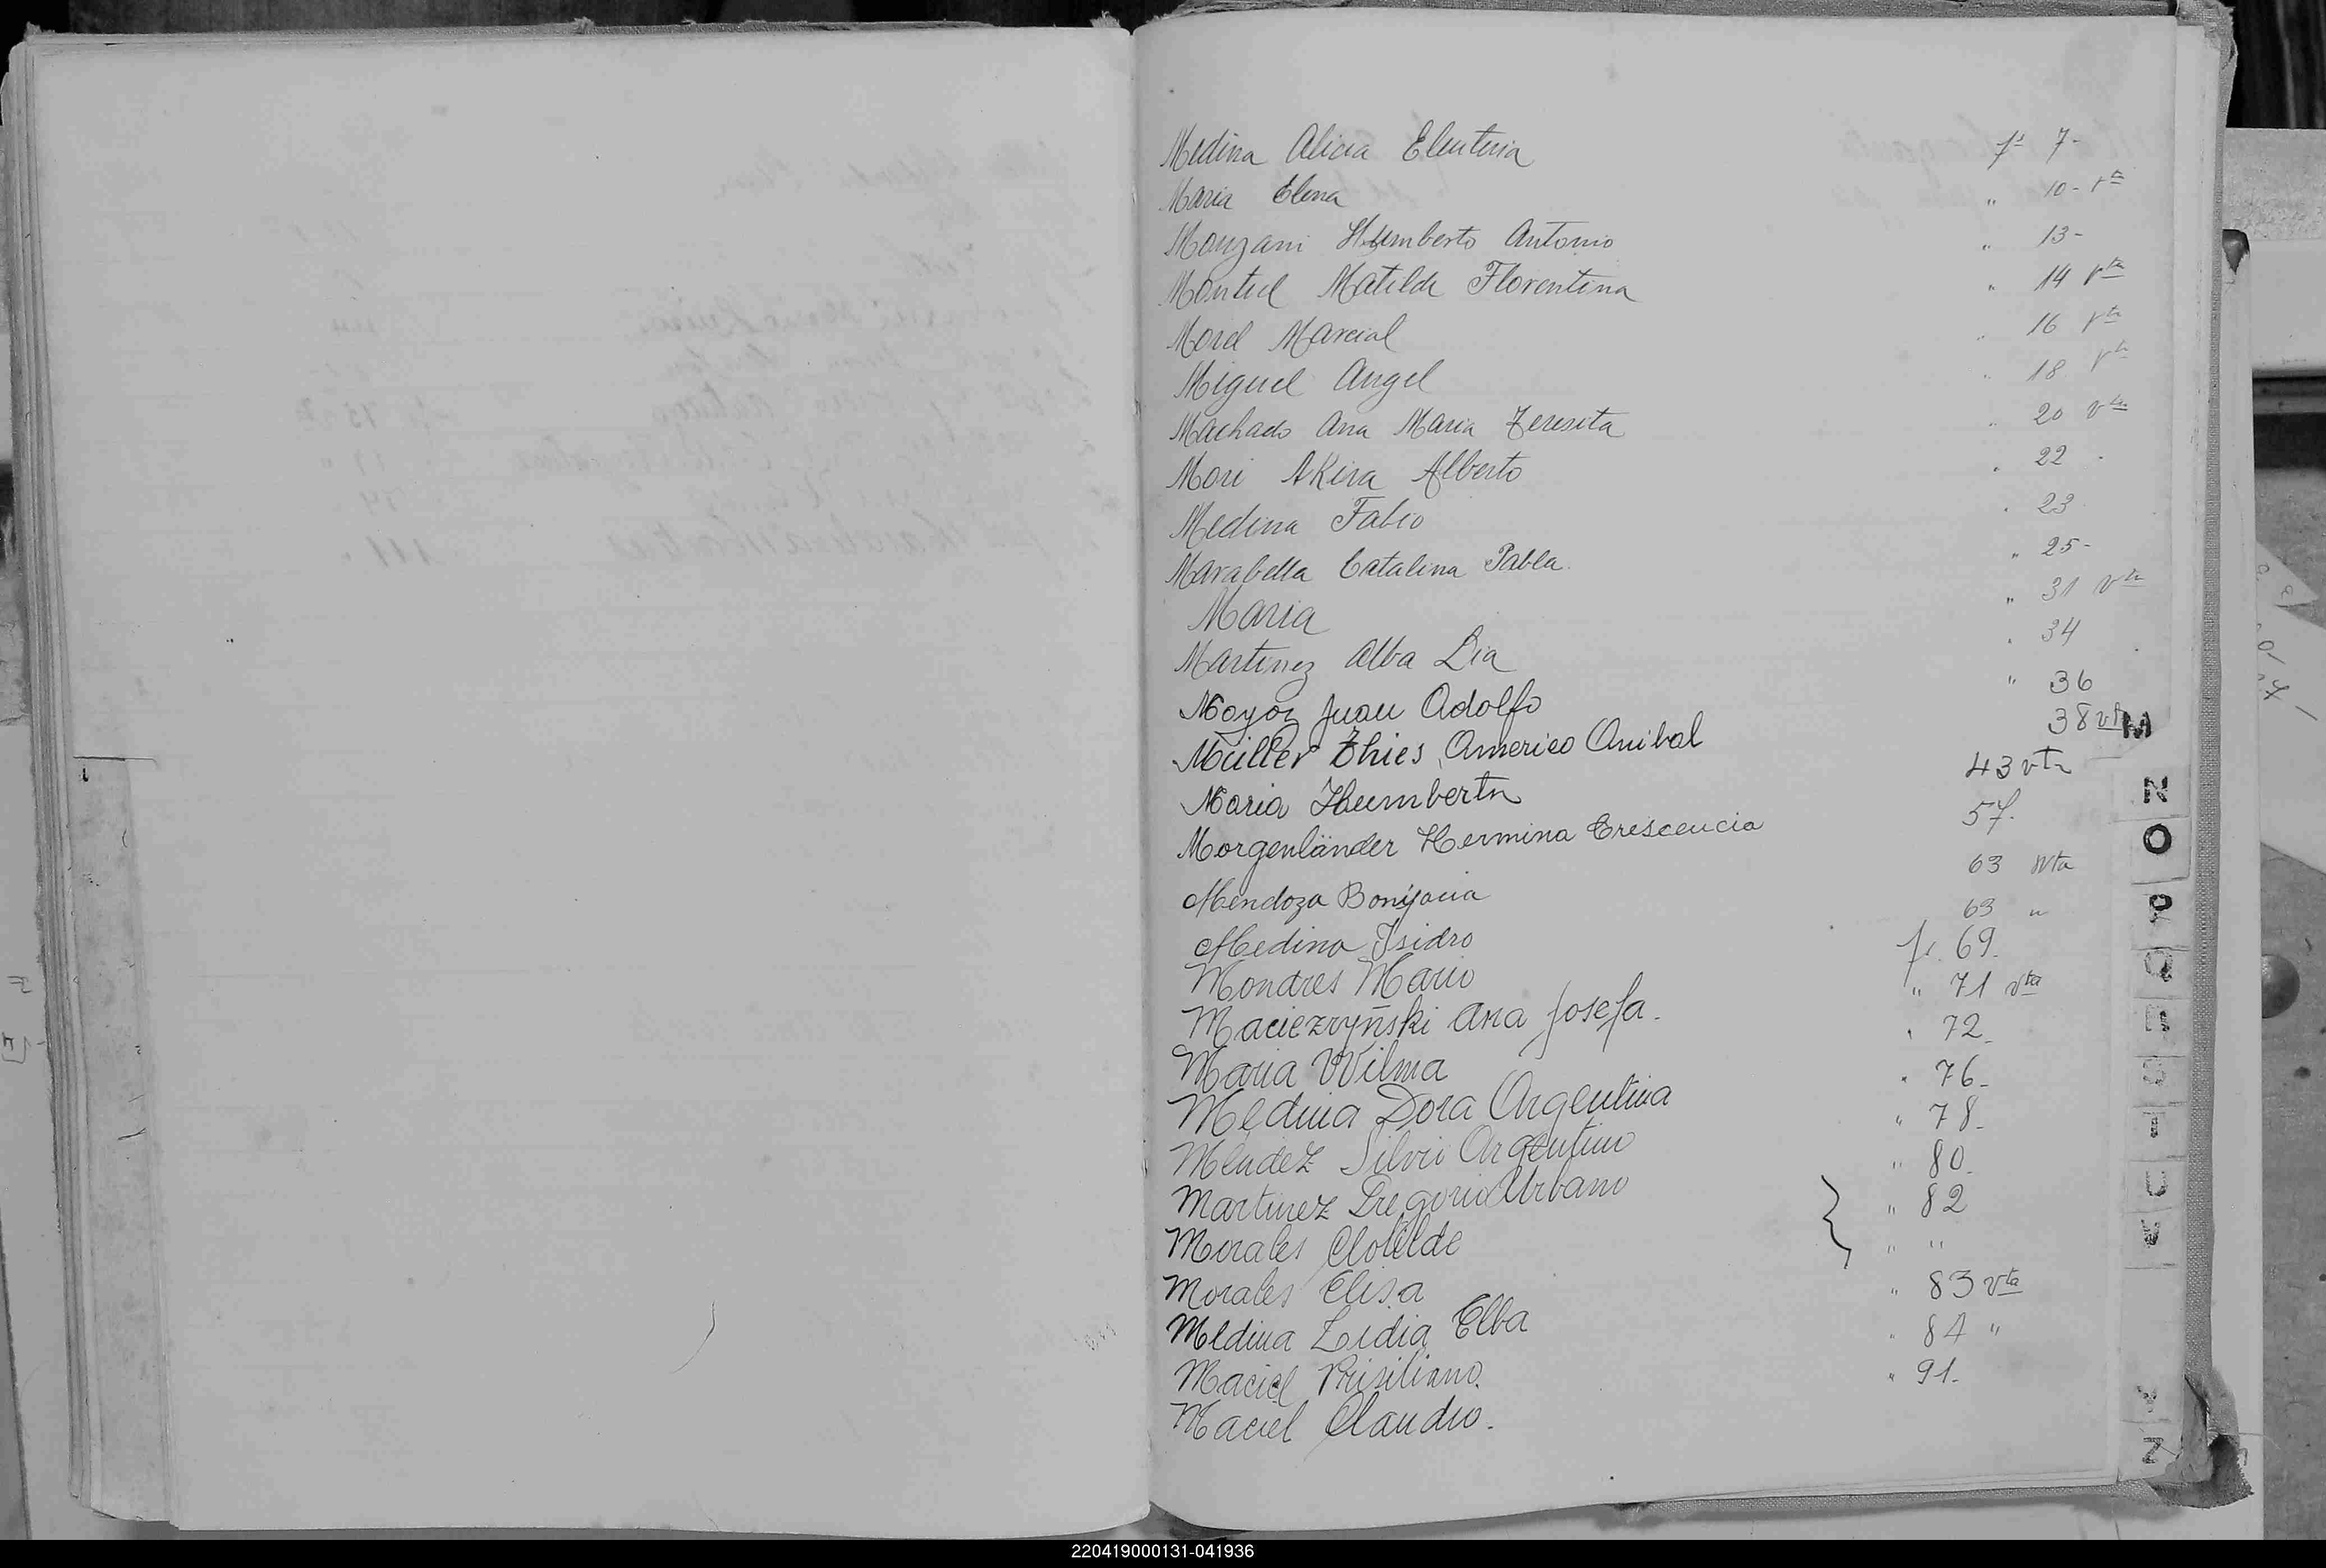 Medina Alicia Eleuteria fs 7-
Maria Elena " 10- vta
Monzani Humberto Antonio " 13-
Montiel Matilde Florentina " 14 vta
Morel Marcial " 16 vta
Miguel Angel " 18 vta
Machado Ana Maria Teresita " 20 vta
Mori Akira Alberto " 22
Medina Fabio " 23
Marabella Catalina Pabla " 25-
Maria " 31 vta
Martinez Alba Lia " 34
Moyoz Juan Adolfo " 36
Müller Thies, Americo Anibal 38 vta
Maria Humberta 43 vta
Morgenländer Hermina Crescencia 57.
Mendoza Bonifacia 63 vta
Medina Isidro 63 "
Mondres Mario fs. 69.
Maciezryñski Ana Josefa. " 71 vta
Maria Wilma " 72
Medina Dora Argentina " 76-
Méndez Silvio Argentino " 78-
Martinez Gregorio Urbano " 80.
Morales Clotilde " 82
Morales Elisa " "
Medina Lidia Elba " 83 vta
Maciel Prisiliano. " 84 "
Maciel Claudio. " 91.
M
N
O
P
Q
R
S
T
U
V
Y
Z
220419000131-041936